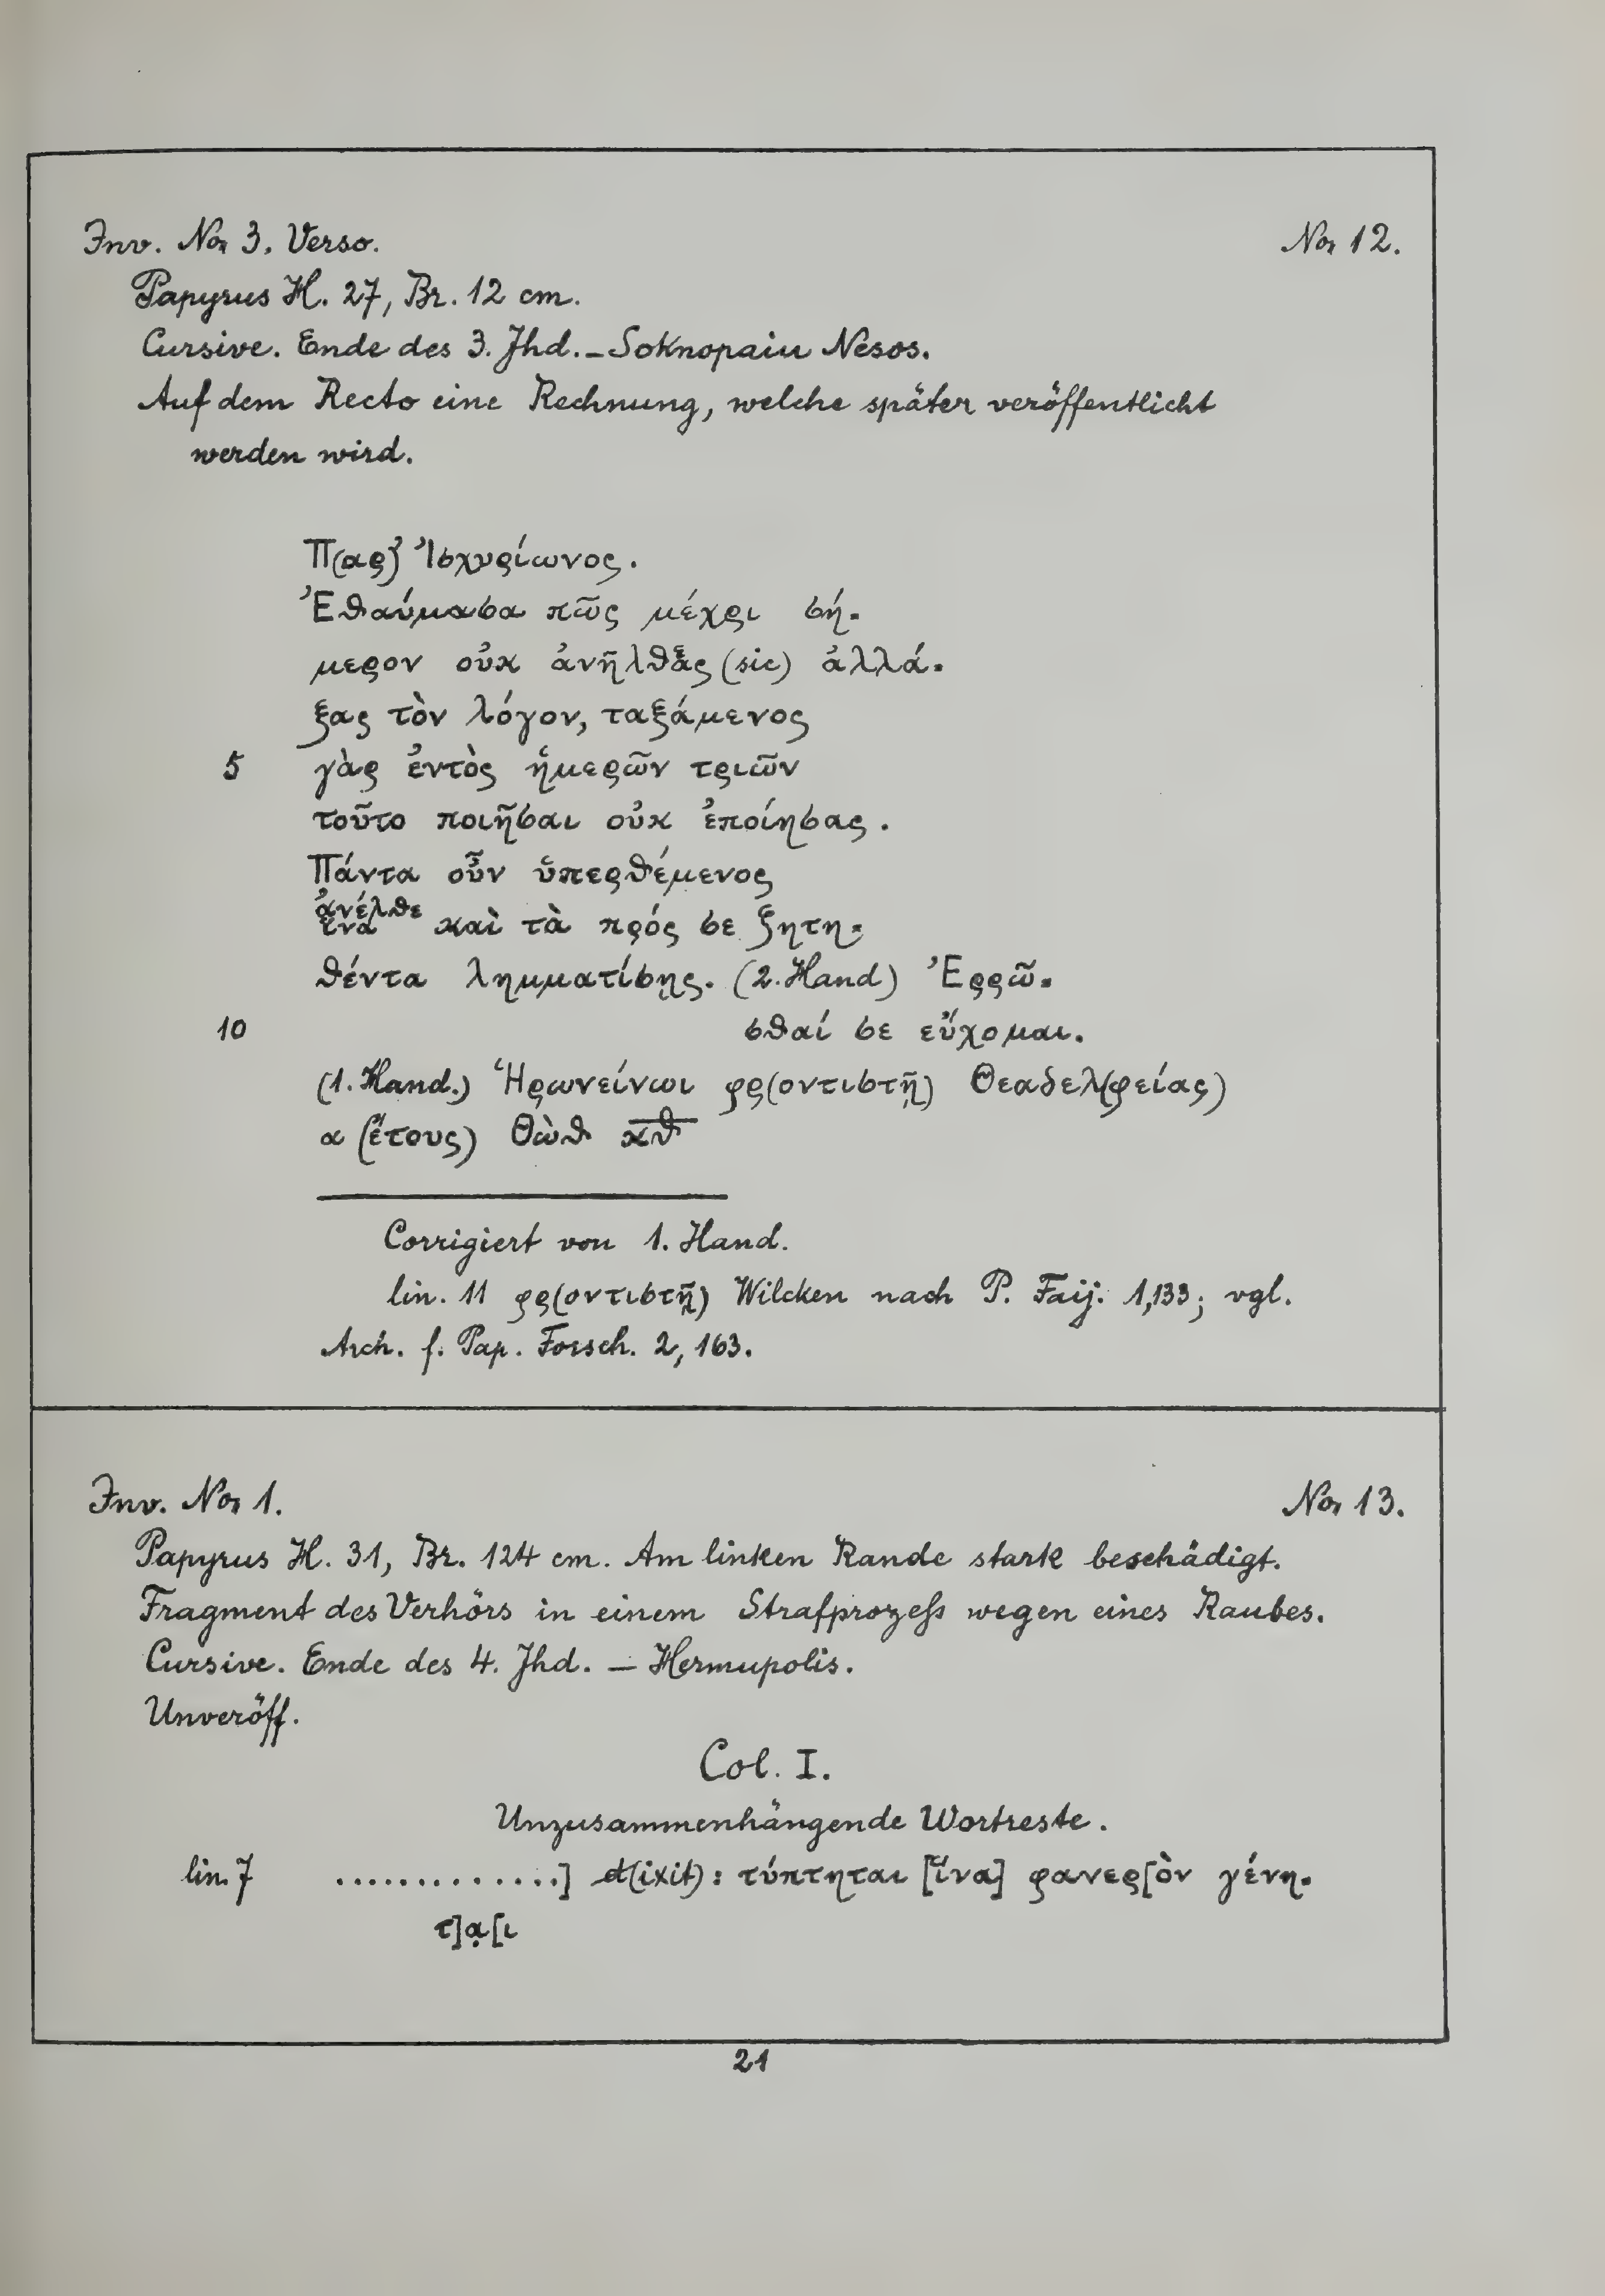 Inv. No. 3. Verso. No. 12.
Papyrus H. 27, Br. 12 cm.
Cursive. Ende des 3. Jhd. – Soknopaiu Nesos.
Auf dem Recto eine Rechnung, welche später veröffentlicht
werden wird.
Π(αρ) Ἰσχυρίωνος.
Ἐθαύμασα πῶς μέχρι σή-
μερον οὐκ ἀνῆλθας (sic) ἀλλά-
ξας τὸν λόγον, ταξάμενος
5 γὰρ ἐντὸς ἡμερῶν τριῶν
τοῦτο ποιῆσαι οὐκ ἐποίησας.
Πάντα οὖν ὑπερθέμενος
ἀνέλθε
ἵνα καὶ τὰ πρός σε ζητη-
θέντα λημματίσῃς. (2. Hand) Ἐρρῶ-
10 σθαί σε εὔχομαι.
(1. Hand.) Ἡρωνείνωι φρ(οντιστῇ) Θεαδελ(φείας)
α (ἔτους) Θὼθ κθ
Corrigiert von 1. Hand.
lin. 11 φρ(οντιστῇ) Wilcken nach P. Faij. 1,133; vgl.
Arch. f. Pap. Forsch. 2, 163.
Inv. No. 1. No. 13.
Papyrus H. 31, Br. 124 cm. Am linken Rande stark beschädigt.
Fragment des Verhörs in einem Strafprozeß wegen eines Raubes.
Cursive. Ende des 4. Jhd. – Hermupolis.
Unveröff.
Col. I.
Unzusammenhängende Wortreste.
lin. 7 ..............] d(ixit): τύπτηται [ἵνα] φανερ[ὸν γένη-
τ]α̣[ι
21